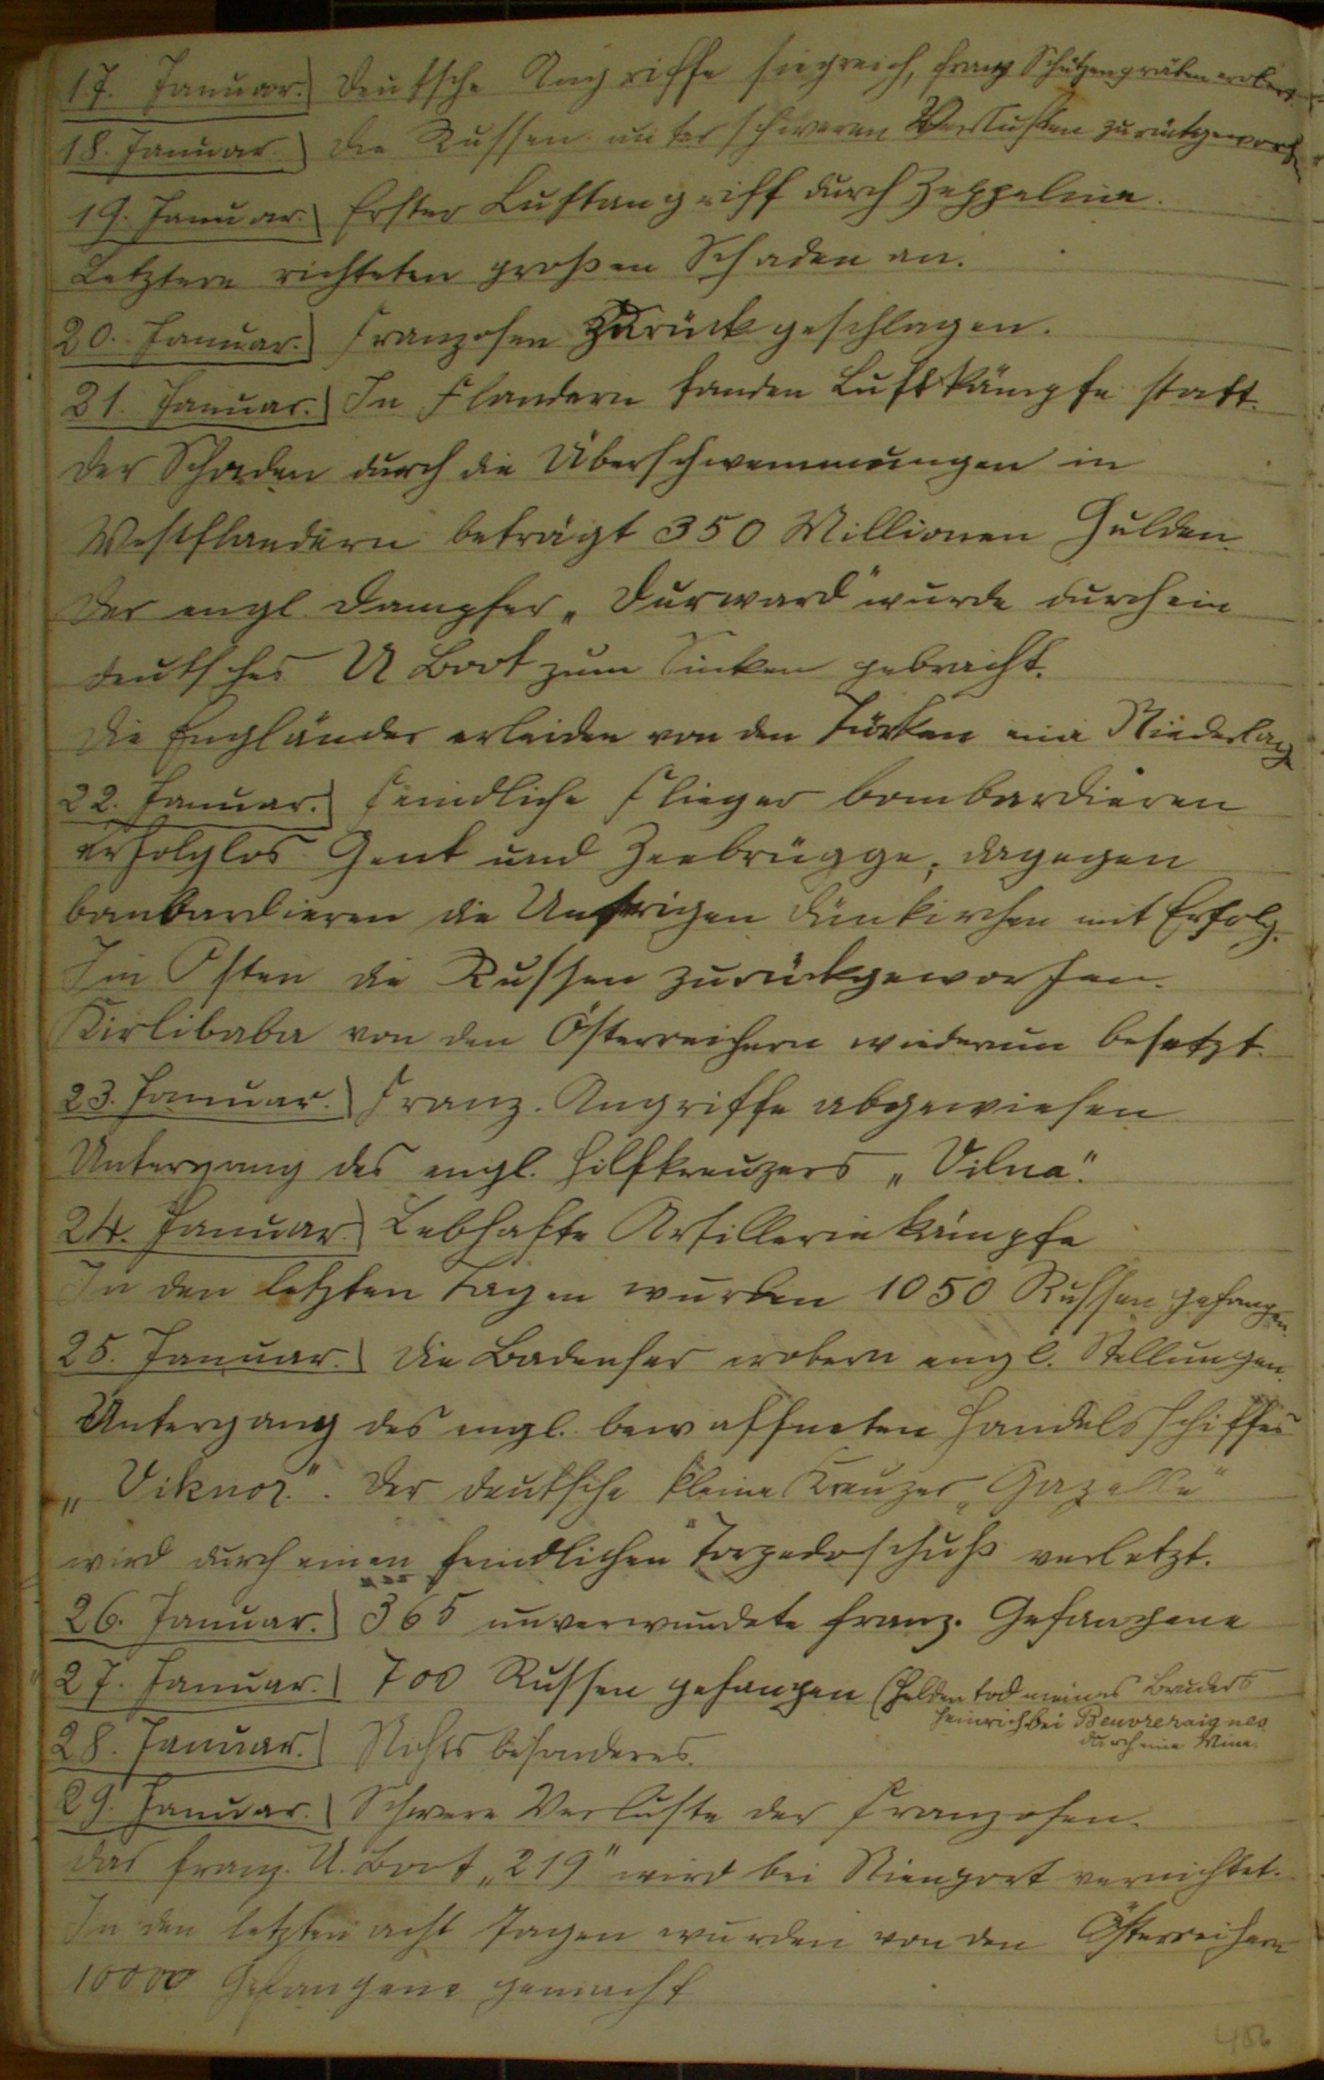 17. Januar. Deutsche Angriffe siegreich, franz Schützengräben erobert.
18. Januar. Die Russen unter schweren Verlusten zurückgeworfen
19. Januar. Erster Luftangriff durch Zeppeline.
Letztere richteten großen Schaden an.
20. Januar. Franzosen zurückgeschlagen.
21. Januar. In Flandern fanden Luftkämpfe statt.
Der Schaden durch die Überschwemmungen in
Westflandern beträgt 350 Millionen Gulden.
Der engl. Dampfer „Durward" wurde durch ein
deutsches U Boot zum Sinken gebracht.
Die Engländer erleiden von den Türken eine Niederlage
22. Januar. Feindliche Flieger bombardieren
erfolglos Gent und Zeebrügge, dagegen
bombardieren die Unsrigen Dünkirchen mit Erfolg.
Im Osten die Russen zurückgeworfen.
Kirlibaba von den Österreichern wiederum besetzt.
23. Januar. Franz. Angriffe abgewiesen
Untergang des engl. Hilfkreuzers „Vilna".
24. Januar. Lebhafte Artilleriekämpfe
In den letzten Tagen wurden 1050 Russen gefangen.
25. Januar. Die Badenser erobern engl. Stellungen.
Untergang des engl. bewaffneten Handelsschiffes
„Viknor". Der deutsche kleine Kreuzer „Gazelle"
wird durch einen feindlichen Torpedoschuß verletzt.
26. Januar. 365 unverwundete franz. Gefangene
27. Januar. 700 Russen gefangen (Heldentod meines Bruders
Heinrich bei Beuvreraignes
durch eine Mine.
28. Januar. Nichts besonderes.
29. Januar. Schwere Verluste der Franzosen.
Das franz. U. Boot „219" wird bei Nieuport vernichtet.
In den letzten acht Tagen wurden von den Österreichern
10000 Gefangene gemacht
486